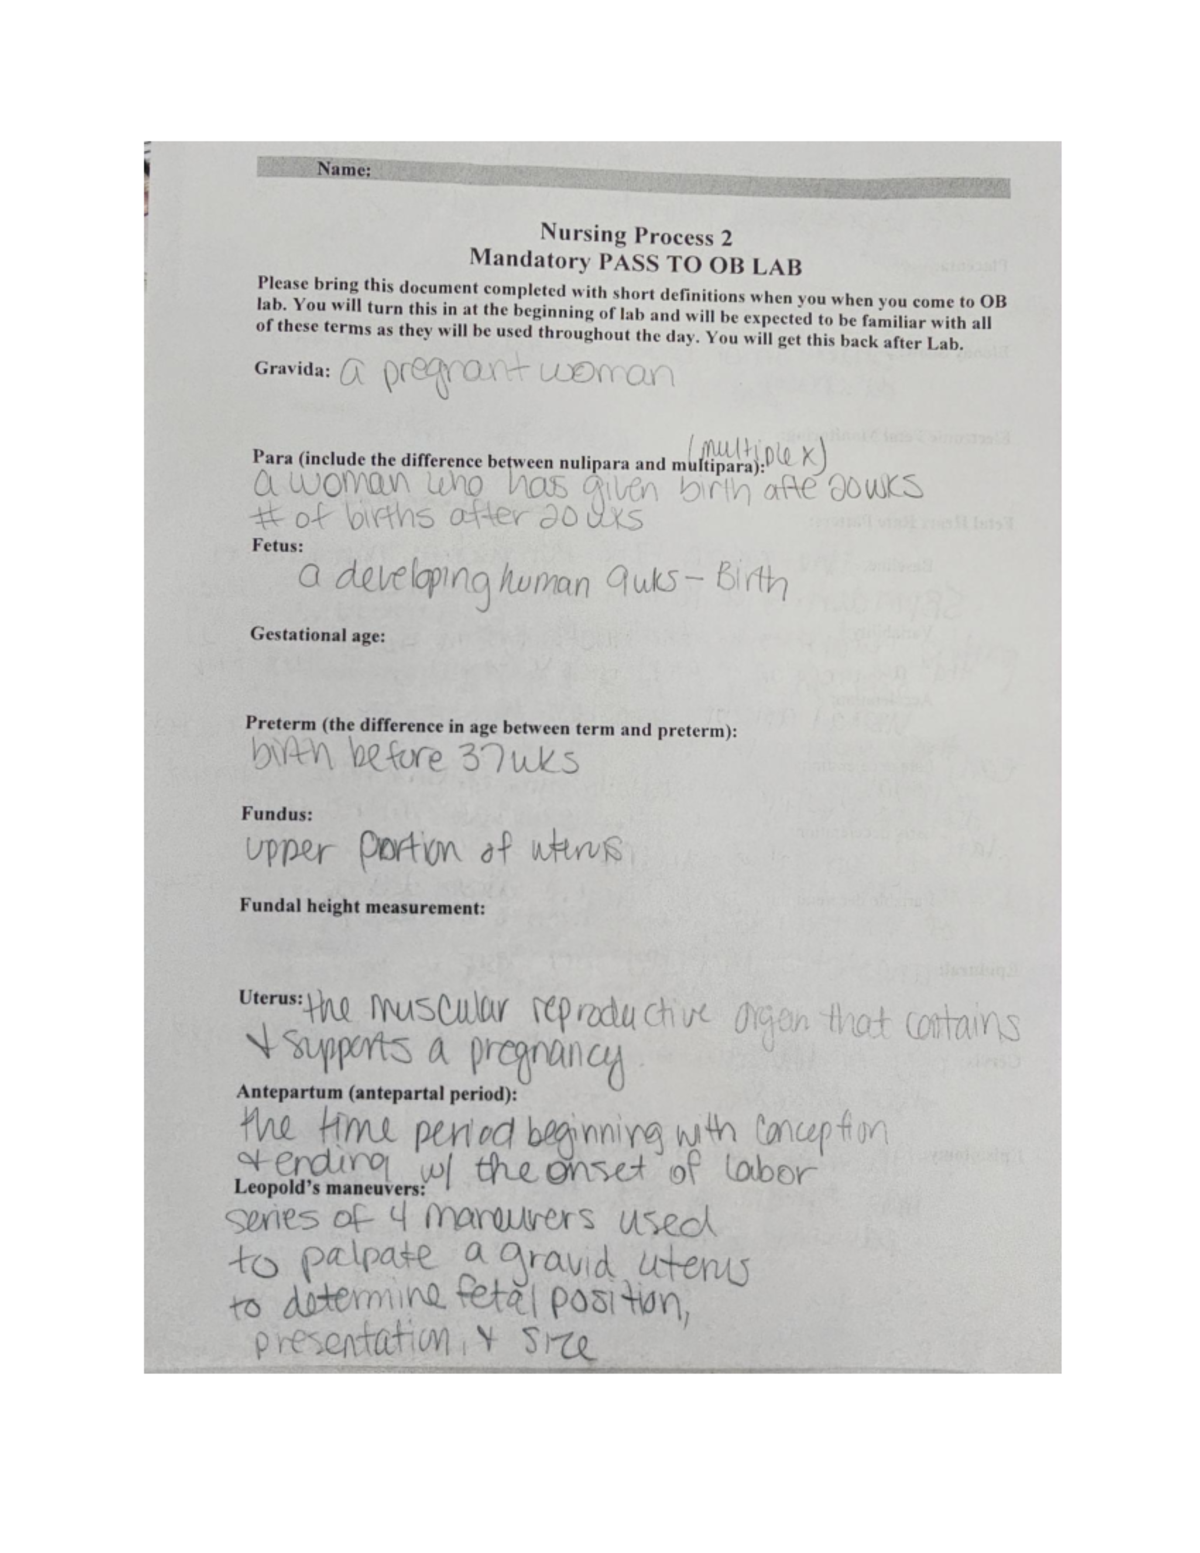 Name:
Nursing Process 2
Mandatory PASS TO OB LAB
Please bring this document completed with short definitions when you when you come to OB
lab. You will turn this in at the beginning of lab and will be expected to be familiar with all
of these terms as they will be used throughout the day. You will get this back after Lab.
Gravida: a pregnant woman
(multiple x)
Para (include the difference between nulipara and multipara):
a woman who has given birth afte 20wks
# of births after 20 wks
Fetus:
a developing human 9wks - Birth
Gestational age:
Preterm (the difference in age between term and preterm):
birth before 37wks
Fundus:
upper portion of uterus
Fundal height measurement:
Uterus: the muscular reproductive organ that contains
& supports a pregnancy.
Antepartum (antepartal period):
the time period beginning with conception
& ending w/ the onset of labor
Leopold's maneuvers:
series of 4 maneuvers used
to palpate a gravid uterus
to determine fetal position,
presentation, & size